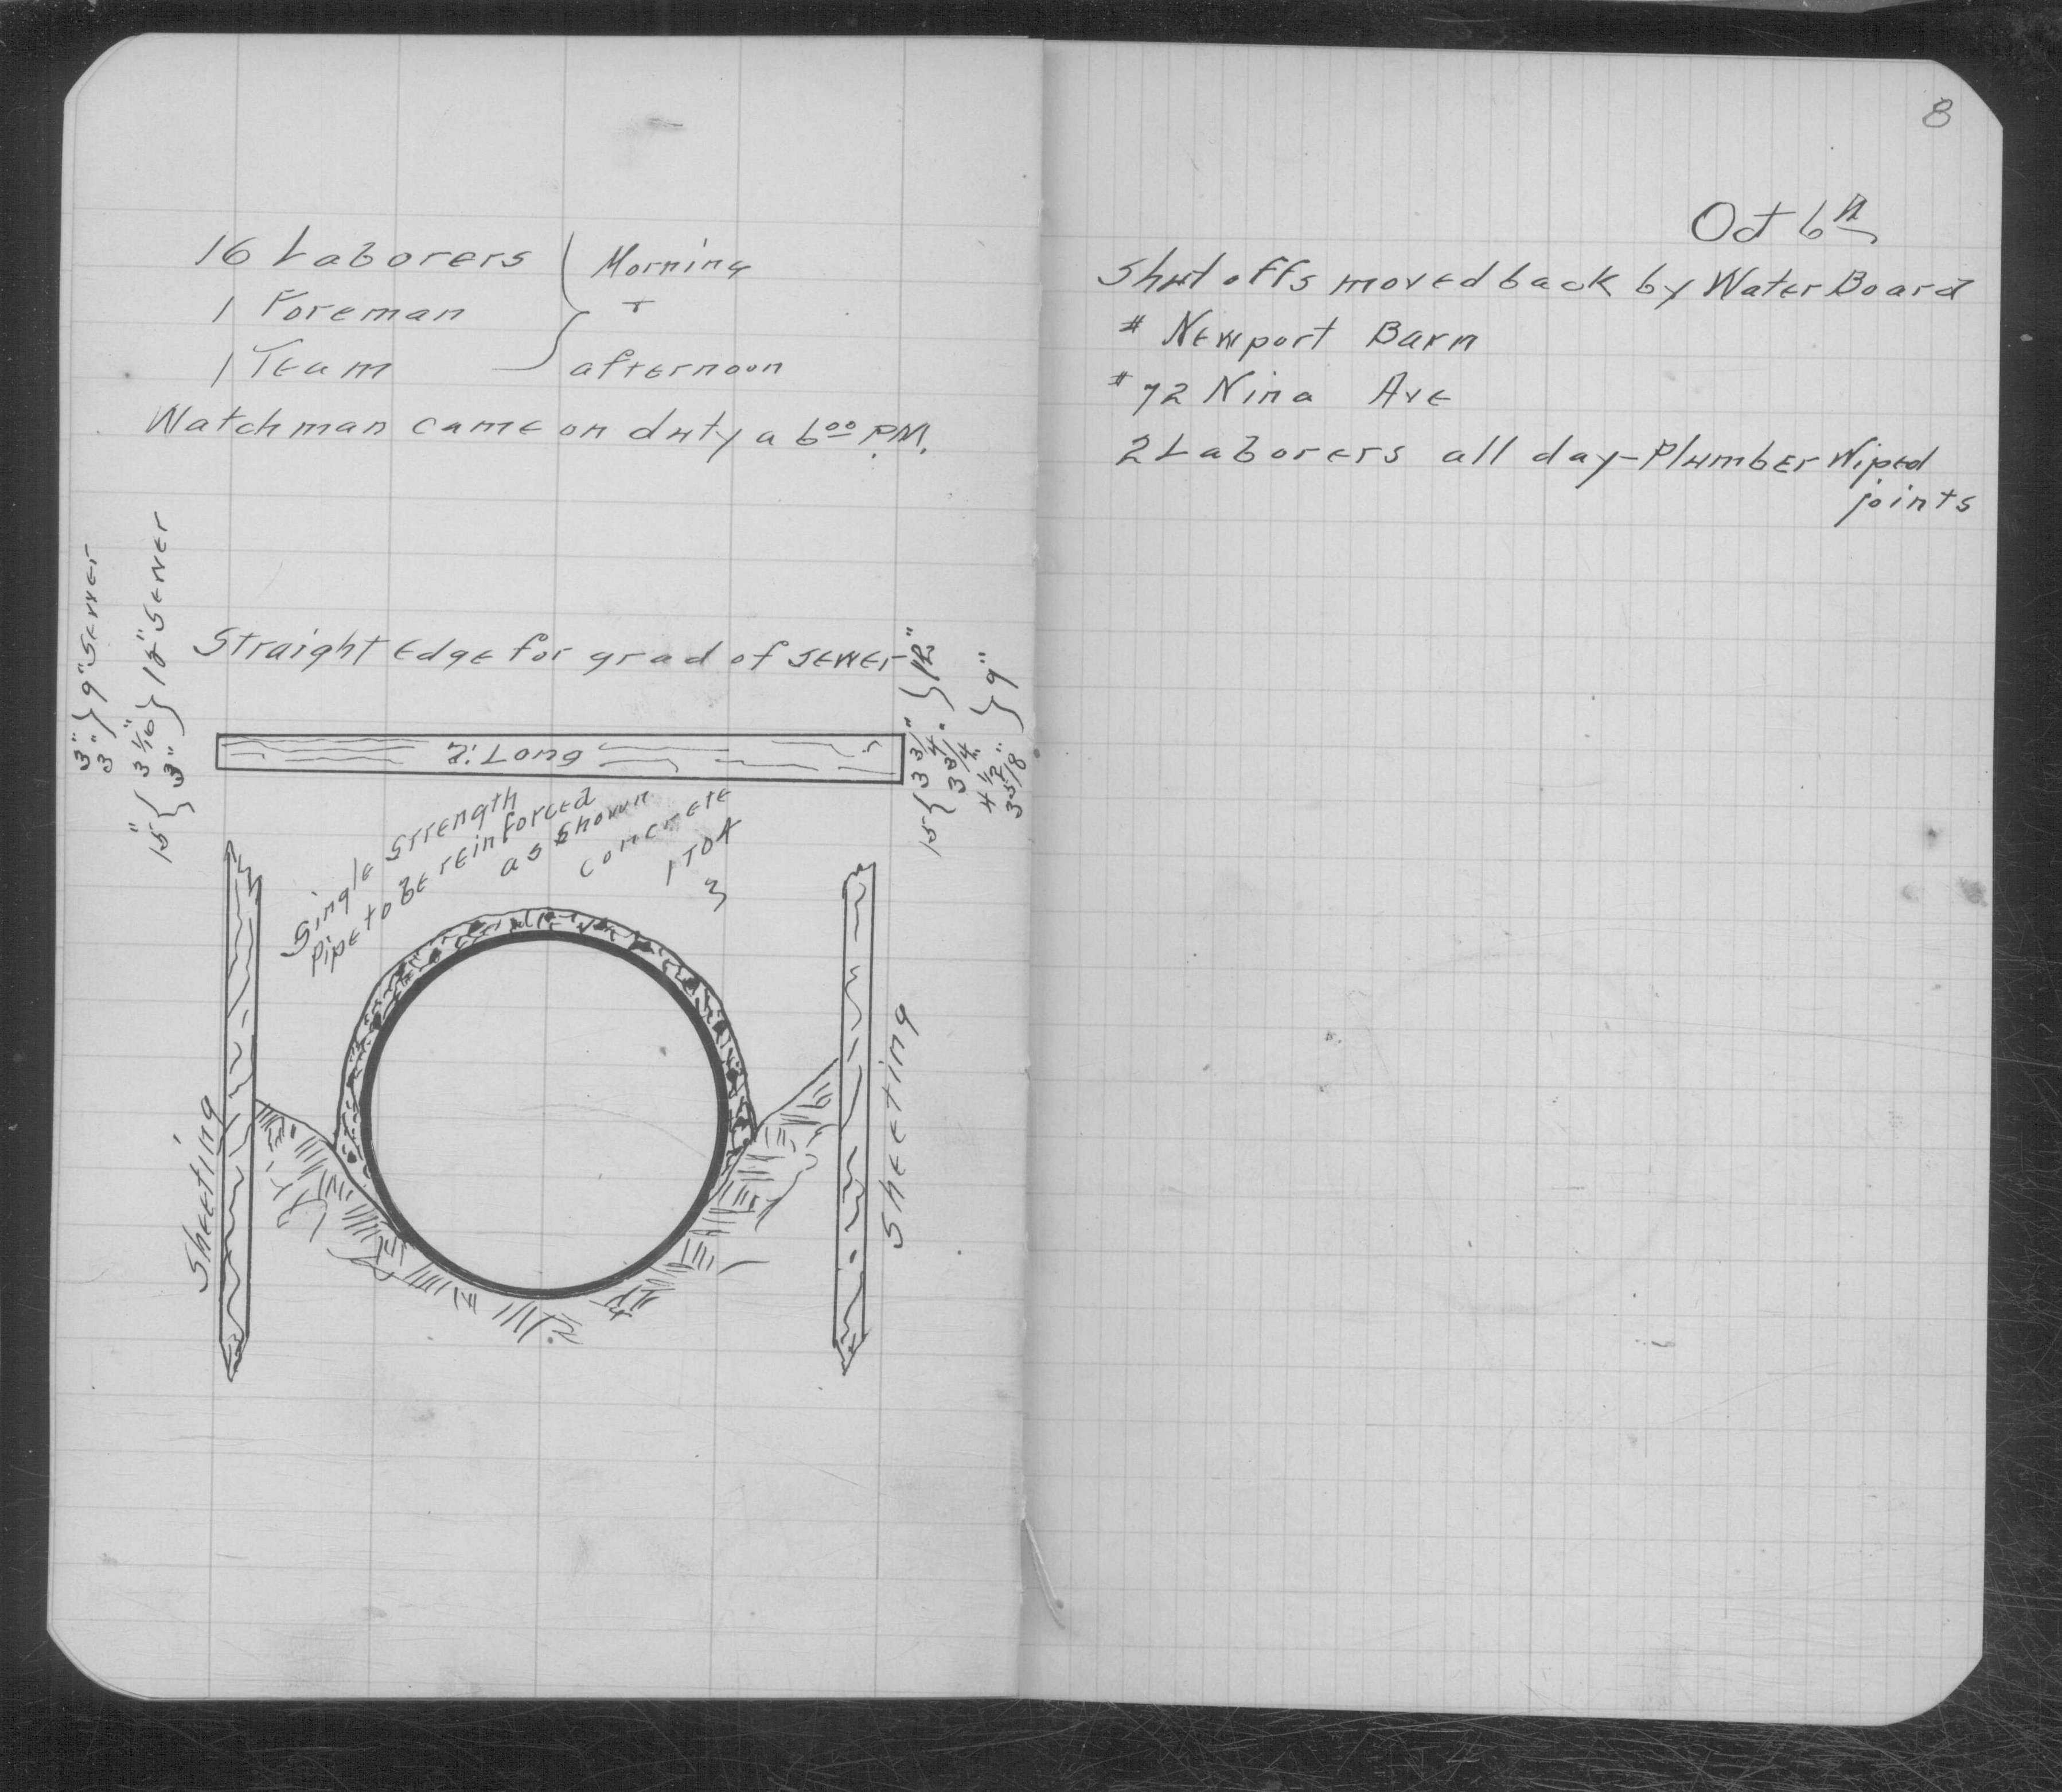 16 Laborers
1 Foreman
1 Team
Morning
+
afternoon
Watchman came on duty a 6⁰⁰ P.M.
3" } 9" Sewer
3"
3 1/16" } 15" Sewer
15" { 3"
Straight Edge for grad of sewer
Long
15" { 3 3/4" } 12"
3 3/4"
4 1/2" } 9"
3 5/8"
Single strength
Pipe to be reinforced
as shown
concrete
1 TO 4
3
Sheeting
Sheeting
8
Oct 6th
Shut offs moved back by Water Board
# Newport Barn
# 72 Nina Ave
2 Laborers all day - Plumber Wiped
joints